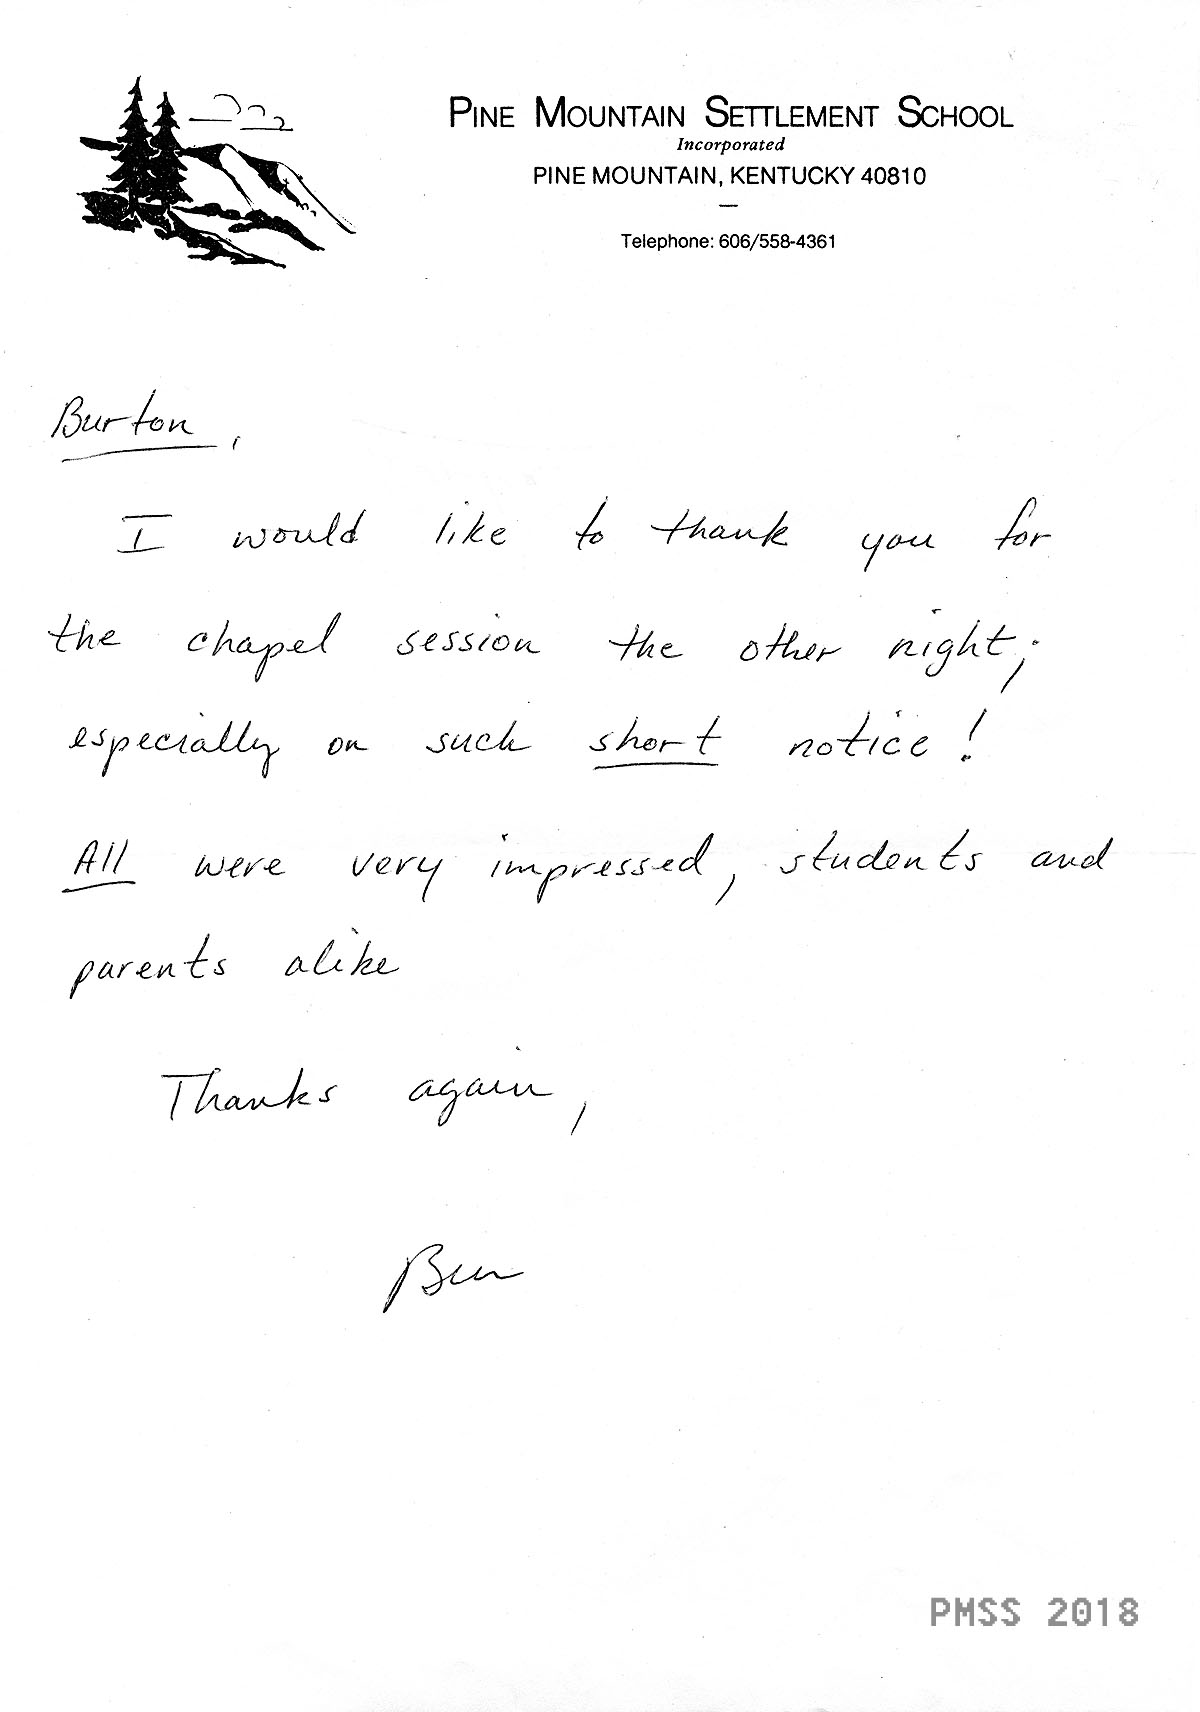 PINE MOUNTAIN SETTLEMENT SCHOOL
Incorporated
PINE MOUNTAIN, KENTUCKY 40810
—
Telephone: 606/558-4361
Burton,
I would like to thank you for
the chapel session the other night;
especially on such short notice!
All were very impressed, students and
parents alike
Thanks again,
Ben
PMSS 2018